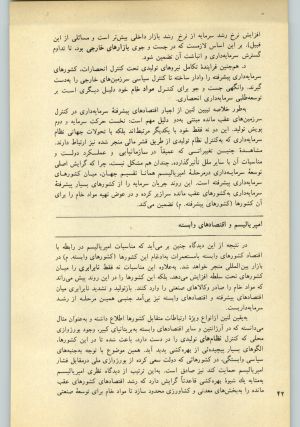 افزایش نرخ رشد سرمایه از نرخ رشد بازار داخلی پیش‌تر است و مسائلی از این
قبیل)، بر این اساس لازمست که در جست و جوی بازارهای خارجی بود، تا تداوم
گسترش سرمایه‌داری و انباشت آن تضمین شود.
د. هم‌چنین فرایندهٔ تکامل نیروهای تولیدی تحت کنترل انحصارات، کشورهای
سرمایه‌داری پیشرفته را وادار ساخته تا کنترل سیاسی سرزمین‌های خارجی را بدست
گیرند. وانگهی جست و جو برای کنترل مواد خام خود دلیل دیگری است بر
توسعه‌طلبی سرمایه‌داری انحصاری.
به‌طور خلاصه تبیین لنین از اجبار اقتصادهای پیشرفتهٔ سرمایه‌داری در کنترل
سرزمین‌های عقب مانده مبتنی به‌دو دلیل مهم است: نخست حرکت سرمایه و دوم
پویش تولید. این دو نه فقط خود با یکدیگر مرتبط‌اند بلکه با تحولات جهانی نظام
سرمایه‌داری که به‌کنترل نظام تولیدی از طریق قشر مالی منجر شده نیز ارتباط دارند.
مشاهدهٔ چنین تغییراتی که عمیقاً در سازمانیابی و عملکرد دولت و
مناسبات آن با سایر ملل تأثیر گذارده، چندان هم مشکل نیست، چرا که گرایش اصلی
توسعهٔ سرمایه‌داری در مرحلهٔ امپریالیسم همانا تقسیم جهان، میان کشورهای
سرمایه‌داری پیشرفته است. این روند جریان سرمایه را از کشورهای بسیار پیشرفتهٔ
سرمایه‌داری به‌کشورهای عقب مانده سرازیر کرده و در عوض تهیه مواد خام را برای
کشورهای پیشرفته (کشورهای م) تضمین می‌کند.
امپریالیسم و اقتصادهای وابسته
در نتیجه از این دیدگاه چنین بر می‌آید که مناسبات امپریالیسم در رابطه با
اقتصاد کشورهای وابسته یا مستعمرات به‌ادغام این کشورها (کشورهای وابسته. م) در
بازار بین‌المللی منجر خواهد شد. به‌علاوه این مناسبات نه فقط نابرابری را میان
کشورهای تحت سلطه افزایش می‌دهد، بلکه این کشورها را در این روند پیش می‌راند
که مواد خام را صادر وکالاهای صنعتی را وارد کنند. بازتولید و تشدید نابرابری میان
اقتصادهای پیشرفته و اقتصادهای وابسته نیز بی‌آمد جنبی همین مرحله از رشد
سرمایه‌داریست.
به‌یقین لنین از انواع ویژه ارتباطات متقابل کشورها اطلاع داشته و به‌عنوان مثال
می‌دانسته که در آرژانتین و سایر اقتصادهای وابسته به‌بریتانیای کبیر، وجود بورژوازی
محلی که کنترل نظام‌های تولیدی را در دست دارد، باعث شده تا در این کشورها،
الگوهای بسیار پیچیده‌ئی از بهره‌کشی پدید آید. همین موضوع با توجه به‌جنبه‌های
سیاسی وابستگی، در کشورهائی که دولت سعی کرده از بورژوازی ملی در مقابل فشار
امپریالیسم حمایت کند نیز صادق است. به‌این ترتیب از دیدگاه نظری امپریالیسم
به‌مثابه یک شیوهٔ بهره‌کشی قاعدتاً گرایش دارد که رشد اقتصادهای کشورهای عقب
مانده را به‌بخش‌های معدنی و کشاورزی محدود سازد تا مواد خام برای توسعهٔ صنعتی
۲۲